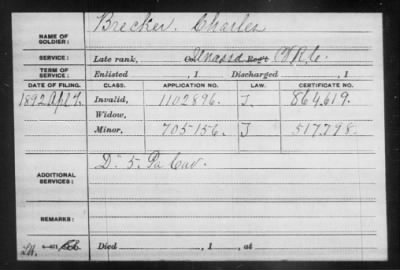 NAME OF SOLDIER: Brecker, Charles
SERVICE: Late rank, Co. Unassd Reg't C.V.R.C.
TERM OF SERVICE: Enlisted , 1 Discharged , 1
DATE OF FILING. CLASS. APPLICATION NO. LAW. CERTIFICATE NO.
1892 Apl 7. Invalid, 1102896. J. 864619.
Widow,
Minor, 705156. J 517798.
ADDITIONAL SERVICES: D. 5. Pa Cav.
REMARKS:
Died , 1 , at